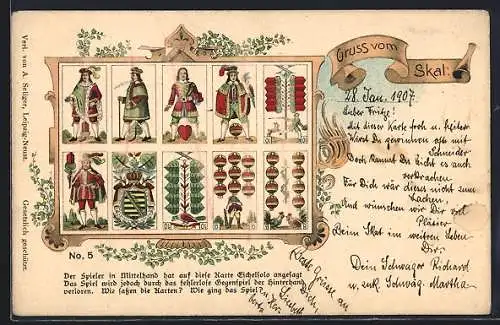 Gruss vom
Skat.
28. Jan. 1907.
Lieber Fritze!
Mit dieser Karte froh u. heiter
Wirst Du gewinnen oft mit
Schneider
Doch kannst Du Licht es auch
verkrachen
Für Dich wär dieses nicht zum
Lachen,
Und wünschen wir Dir viel
Pläsier
Beim Skat im weitren Leben
Dir.
Dein Schwager Richard
u. Schwäg. Martha
Beste Grüsse an
Verl. von A. Seliger, Leipzig-Neust. Gesetzlich geschützt.
No. 5
Der Spieler in Mittelhand hat auf diese Karte Eichelsolo angesagt
Das Spiel wird jedoch durch das fehlerlose Gegenspiel der Hinterhand
verloren. Wie saßen die Karten? Wie ging das Spiel?